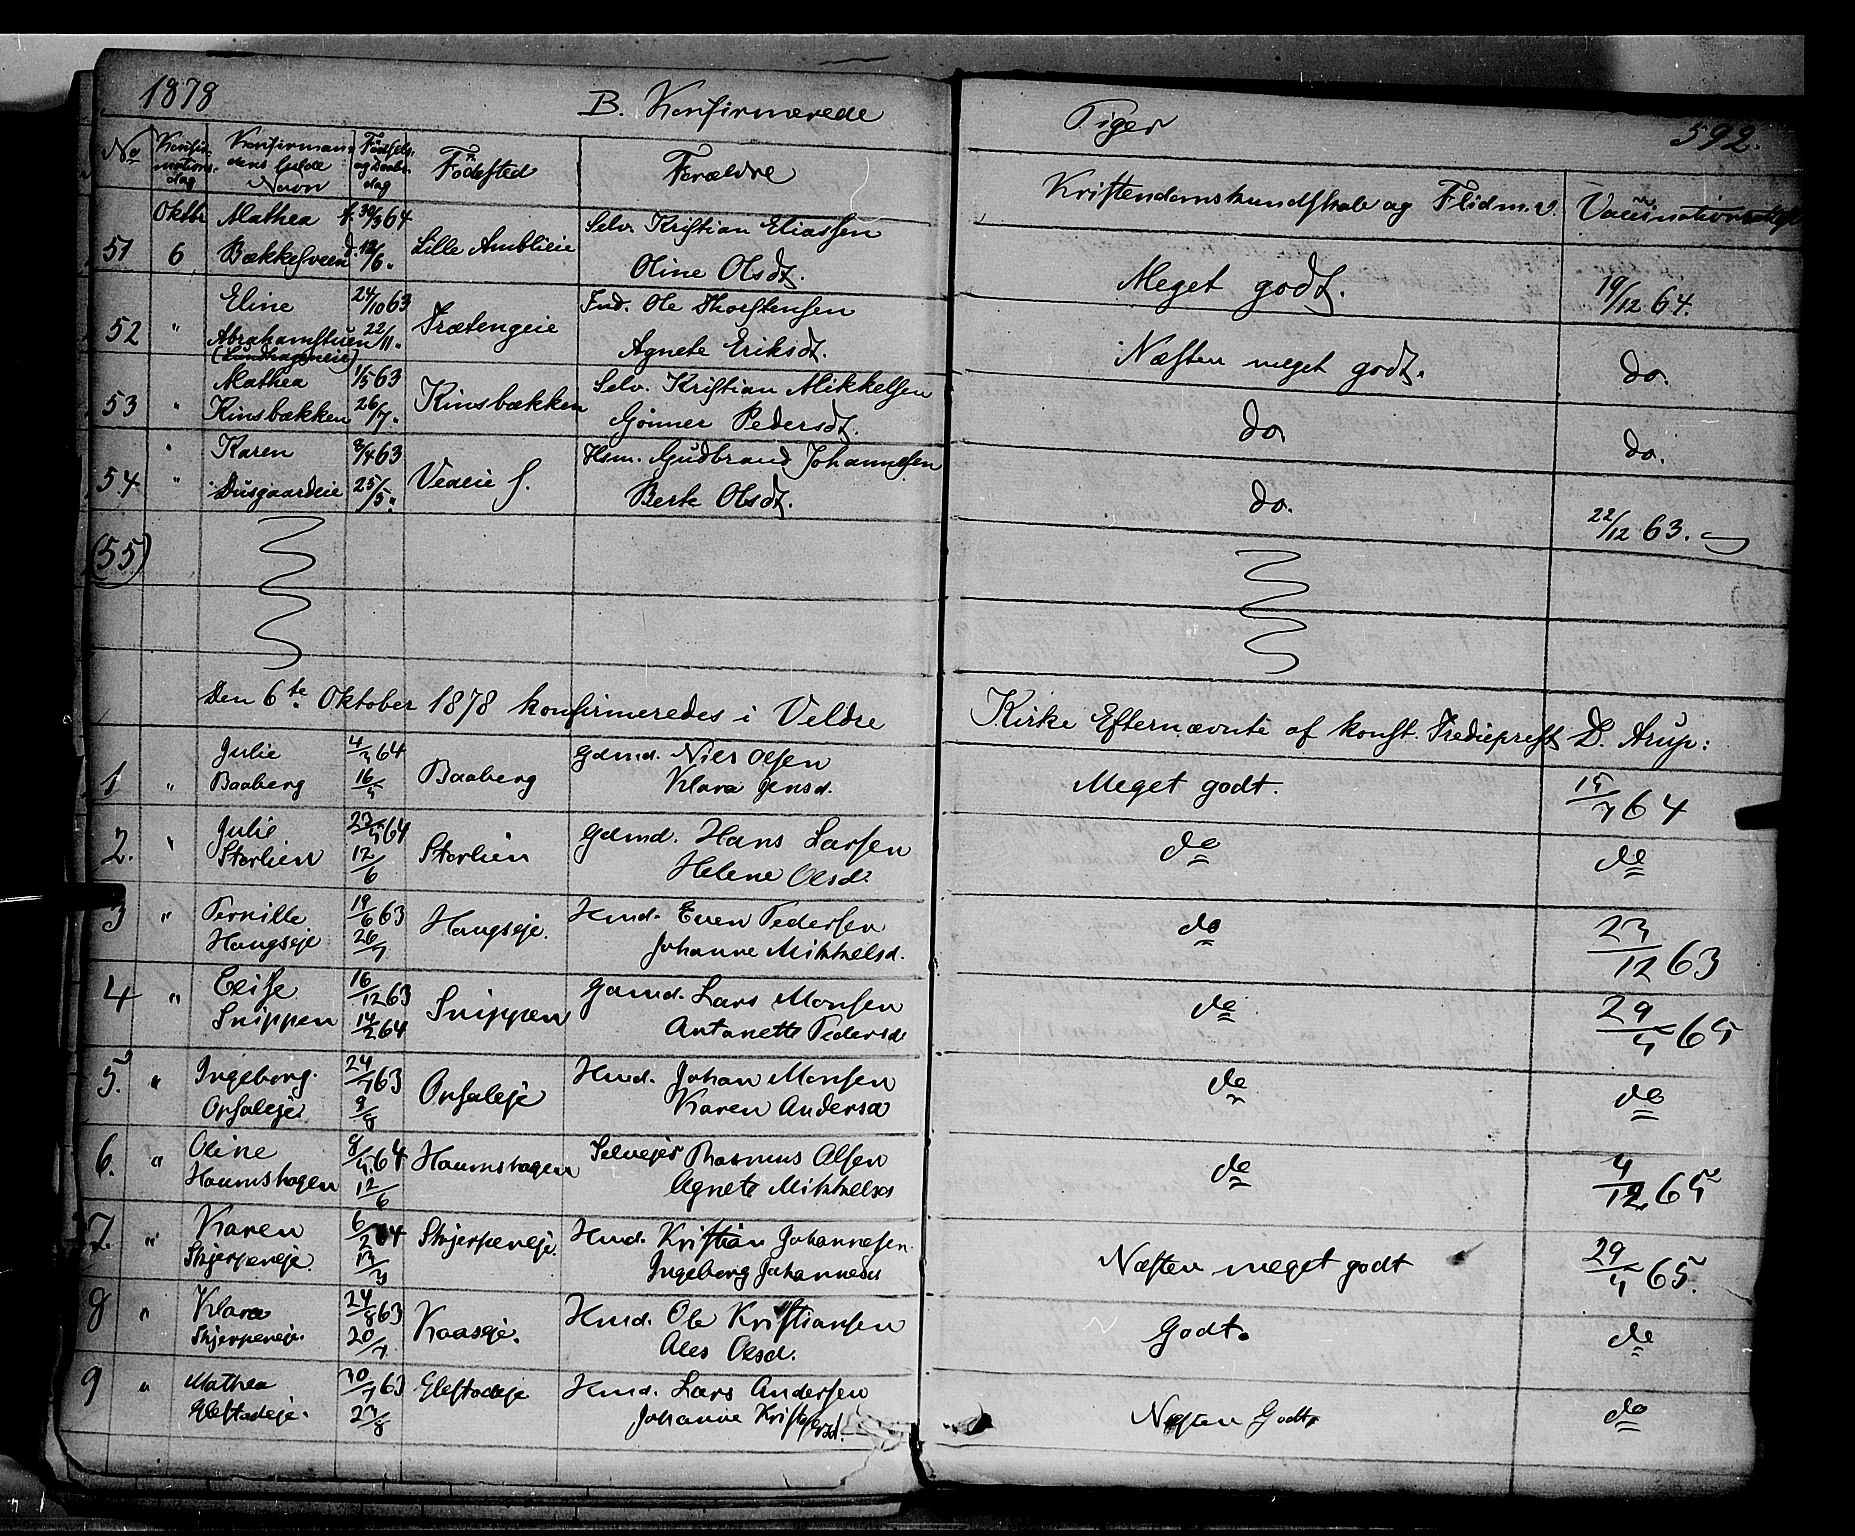 1878 B. Konfirmerede Piger 592.
No Konfirmationsdag Konfirmandens fulde Navn Fødsels og Daabsdag Fødested Forældre Kristendomskundskab og Flid m.v. Vaccination
Oktbr Mathea f. 30/3 64 Selv. Kristian Eliassen
51 6 Bækkesveen d. 12/6. Lille Amblieie Oline Olsdt. Meget godt. 19/12 64.
Eline 24/10 63 Ind. Ole Thorstensen
52 " Abrahamstuen 22/11. Trætengeie Agnete Eriksdt. Næsten meget godt. do.
(Lundhagseie)
Mathea 1/5 63 Selv. Kristian Mikkelsen
53 " Kinsbækken 26/7. Kinsbækken Gønner Pedersdt. do do.
" Karen 3/4 63 Hsm. Gudbrand Johannesen
54 " Dusgaardeie 25/5. Veaeie S. Berte Olsdt. do. 22/12 63.
(55)
Den 6te Oktober 1878 konfirmeredes i Veldre Kirke Efternævnte af konst. Trediepræst D. Arup:
Julie 4/4 64 Gdmd. Niels Olsen
1 " Baaberg 16/5 Baaberg Klara Jensd. Meget godt. 15/7 64
Julie 23/4 64 Gdmd. Hans Larsen
2. " Storlien 12/6 Storlien Helene Olsd. do do
3 " Pernille 19/6 63 Hmd. Even Pedersen
Haugseje 26/7 Haugseje. Johanne Mikkelsd. do 23/12 63
4 " Elise 16/12 63 Gdmd. Lars Monsen
Snippen 14/2 64 Snippen Antonette Pedersd. do 29/5 65
5. " Ingeborg. 24/7 63 Hmd. Johan Monsen
Opsaleje 9/8 Opsaleje Karen Andersd do do
6. " Oline 8/4 64 Selvejer Rasmus Olsen
Haumshagen 12/6 Haumshagen Agnete Mikkelsd do 4/12 65
7. " Karen 6/2 64 Hmd. Kristian Johannesen.
Skjerpeneje. 13/3 Skjerpeneje. Ingeborg Johannesd Næsten meget godt 29/5 65.
8 " Klara 24/8 63 Hmd. Ole Kristiansen
Skjerpeneje. 20/ Kaaseje. Ales Olsd. Godt. do
9 " Mathea 30/7 63 Hmd. Lars Andersen
Glestadeje. 23/8 Glestadeje Johanne Kristofersd. Næsten Godt. do